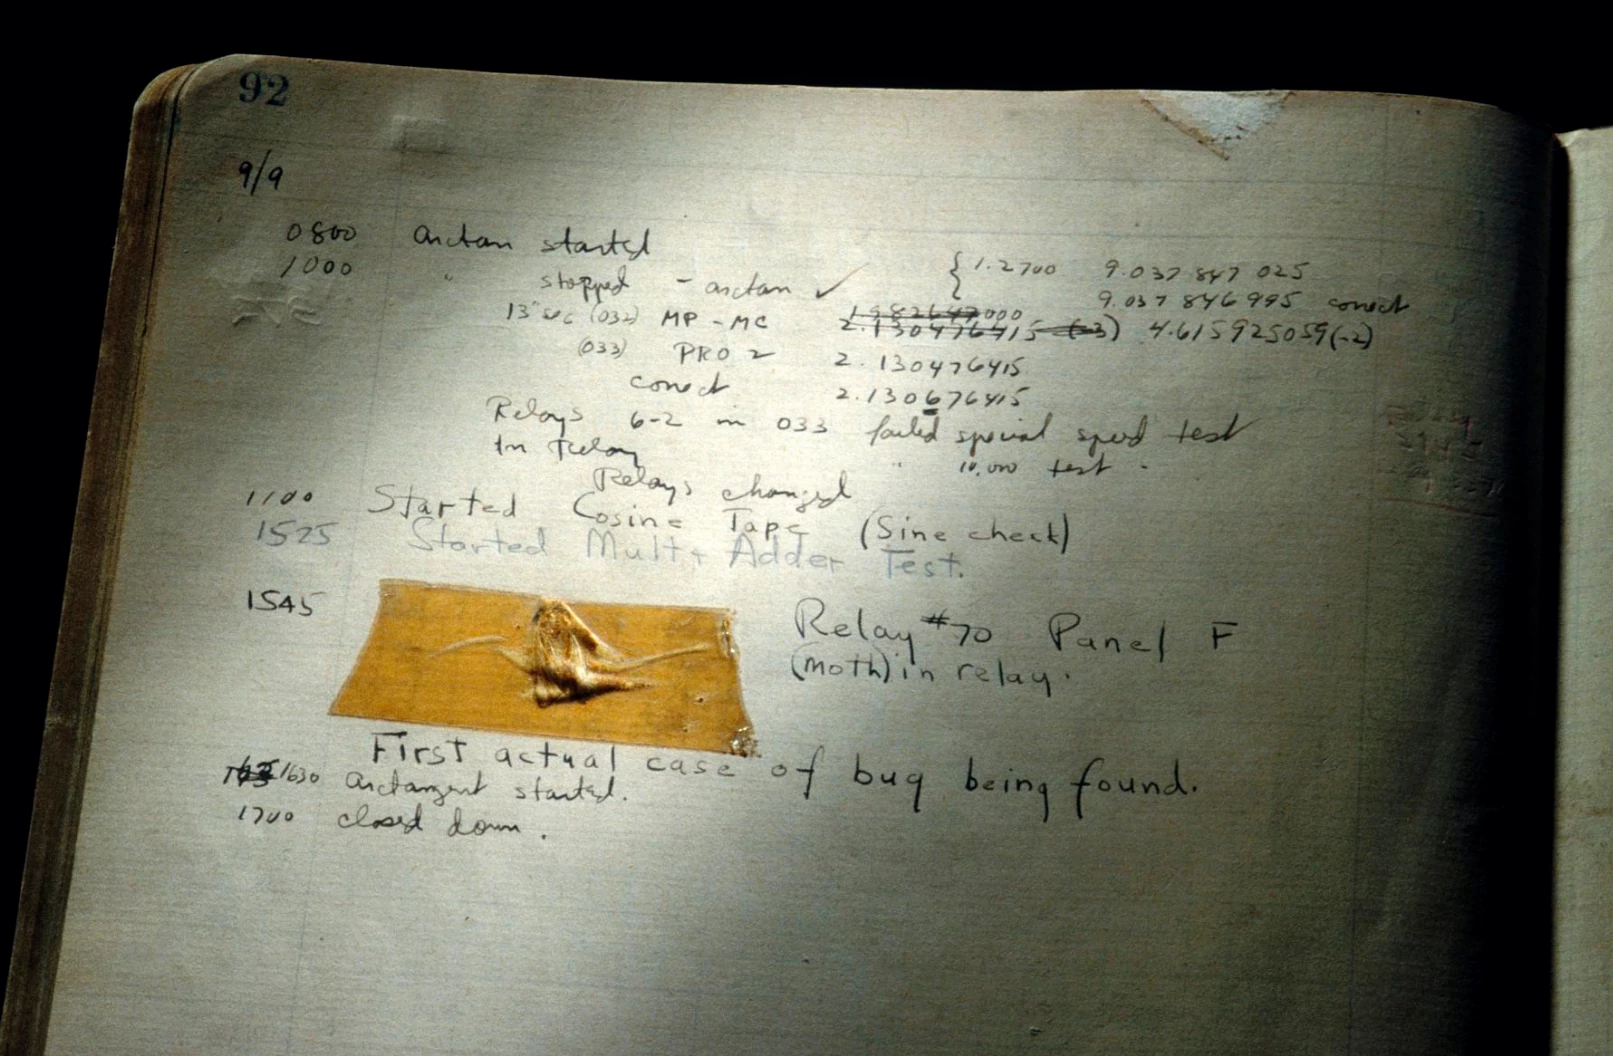 92
9/9
0800 arctan started
1000 " stopped - arctan ✓ { 1.2700 9.037 847 025
9.037 846 995 correct
13" sec (032) MP - MC 1.982647000
2.130476415 (-3) 4.615925059(-2)
(033) PRO 2 2.130476415
correct 2.130676415
Relays 6-2 in 033 failed special speed test
In Relay " 10.000 test .
Relays changed
1100 Started Cosine Tape (Sine check)
1525 Started Mult + Adder Test.
1545 Relay #70 Panel F
(moth) in relay.
First actual case of bug being found.
1630 arctangent started.
1700 closed down.